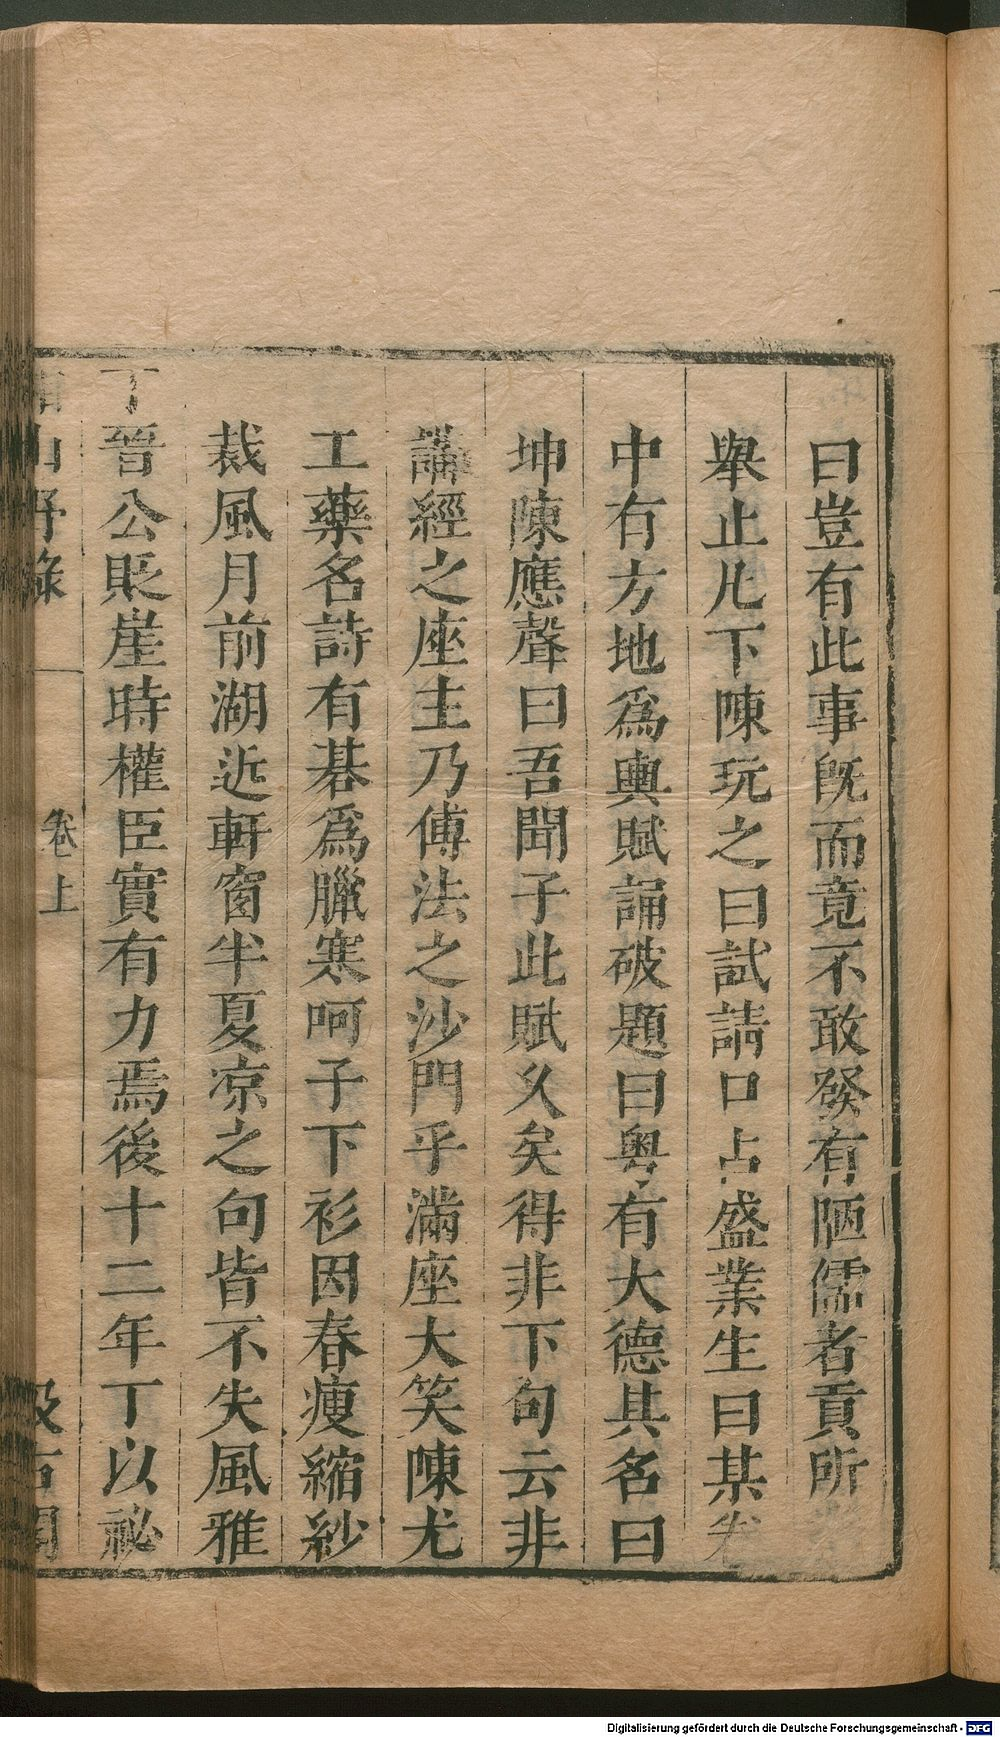 曰豈有此事旣而竟不敢發有陋儒者貢所
舉止凡下陳玩之曰試請口占盛業生曰某
中有方地爲輿賦誦破題曰粤有大德其名曰
坤陳應聲曰吾聞子此賦久矣得非下句云非
講經之座主乃傅法之沙門乎滿座大笑陳尤
工藥名詩有碁爲臘寒呵子下衫因春瘦縮紗
裁風月前湖近軒窗半夏凉之句皆不失風雅
丁晉公貶崖時權臣實有力焉後十二年丁以祕
山野錄
卷上
汲古閣
Digitalisierung gefördert durch die Deutsche Forschungsgemeinschaft - DFG